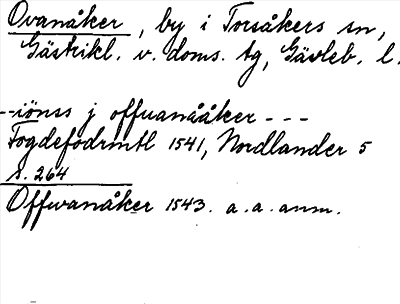 Ovanåker, by i Torsåkers sn,
Gästrikl. v. doms. tg, Gävleb. l.
--iönss j offuanååker ---
Fogdefodrmtl 1541, Nordlander 5
s. 264
Offwanåker 1543. a.a. anm.